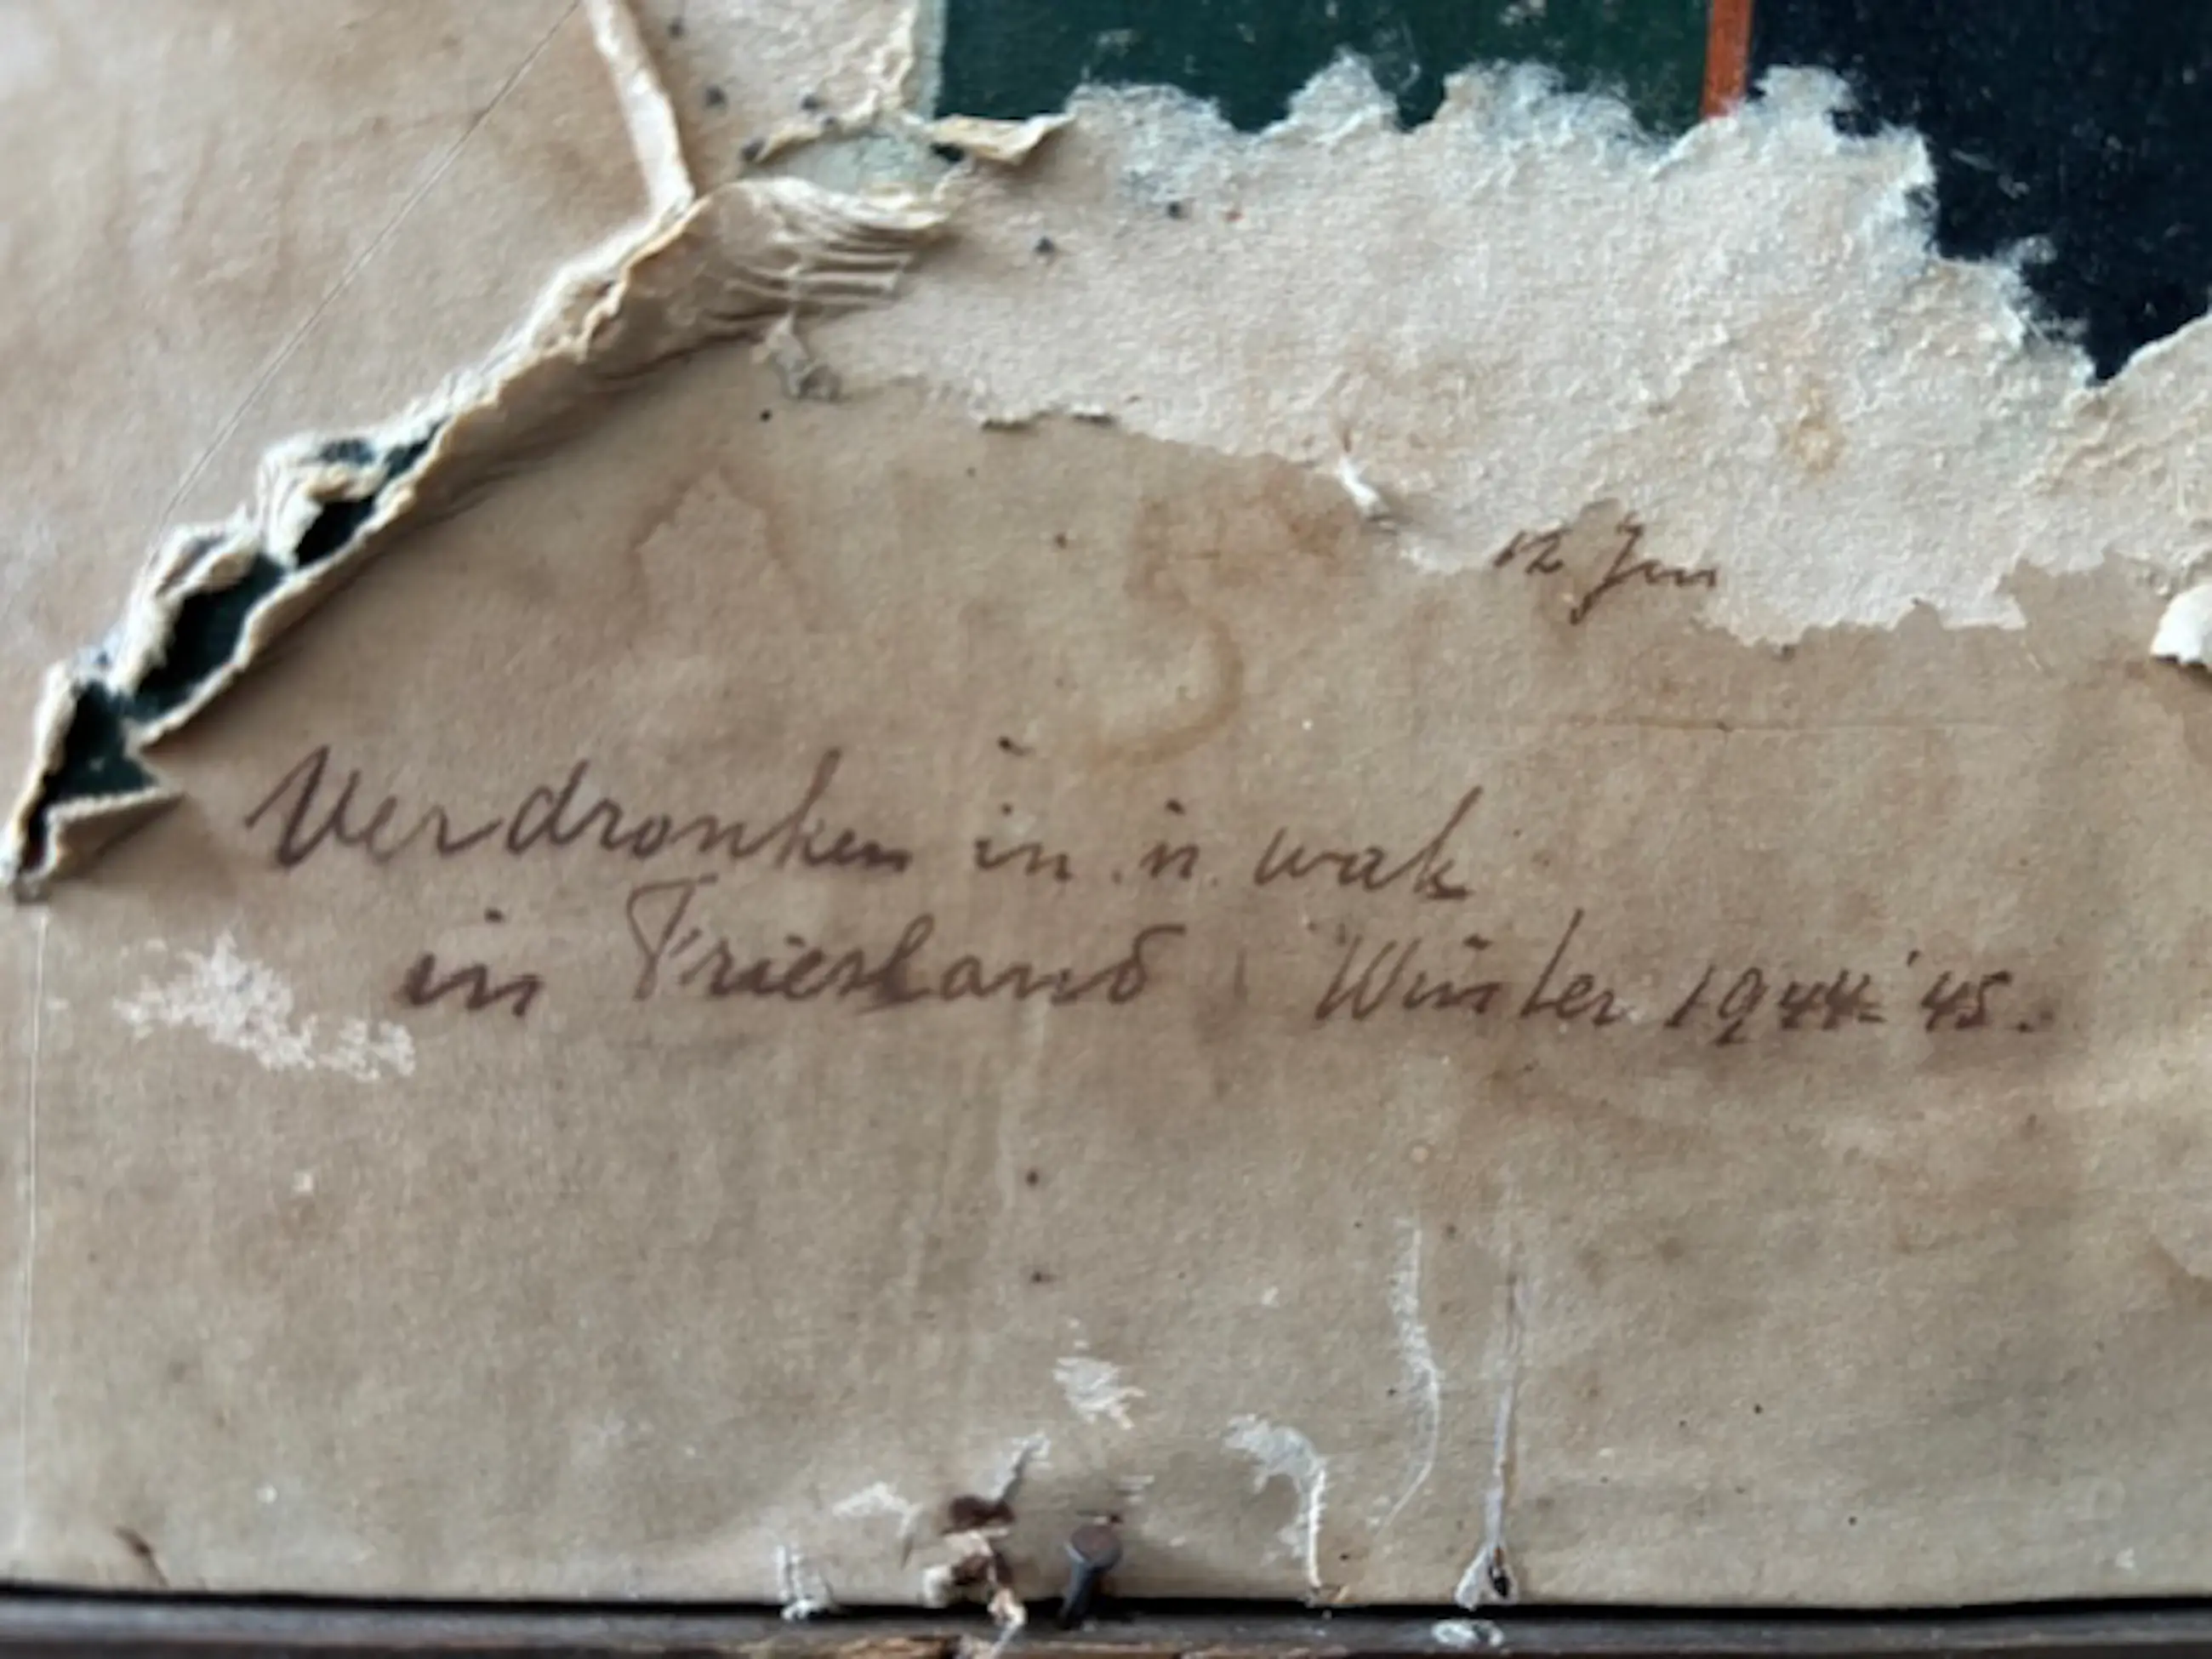 12 Jan
Verdronken in .'n. wak
in Friesland, Winter 1944-'45.